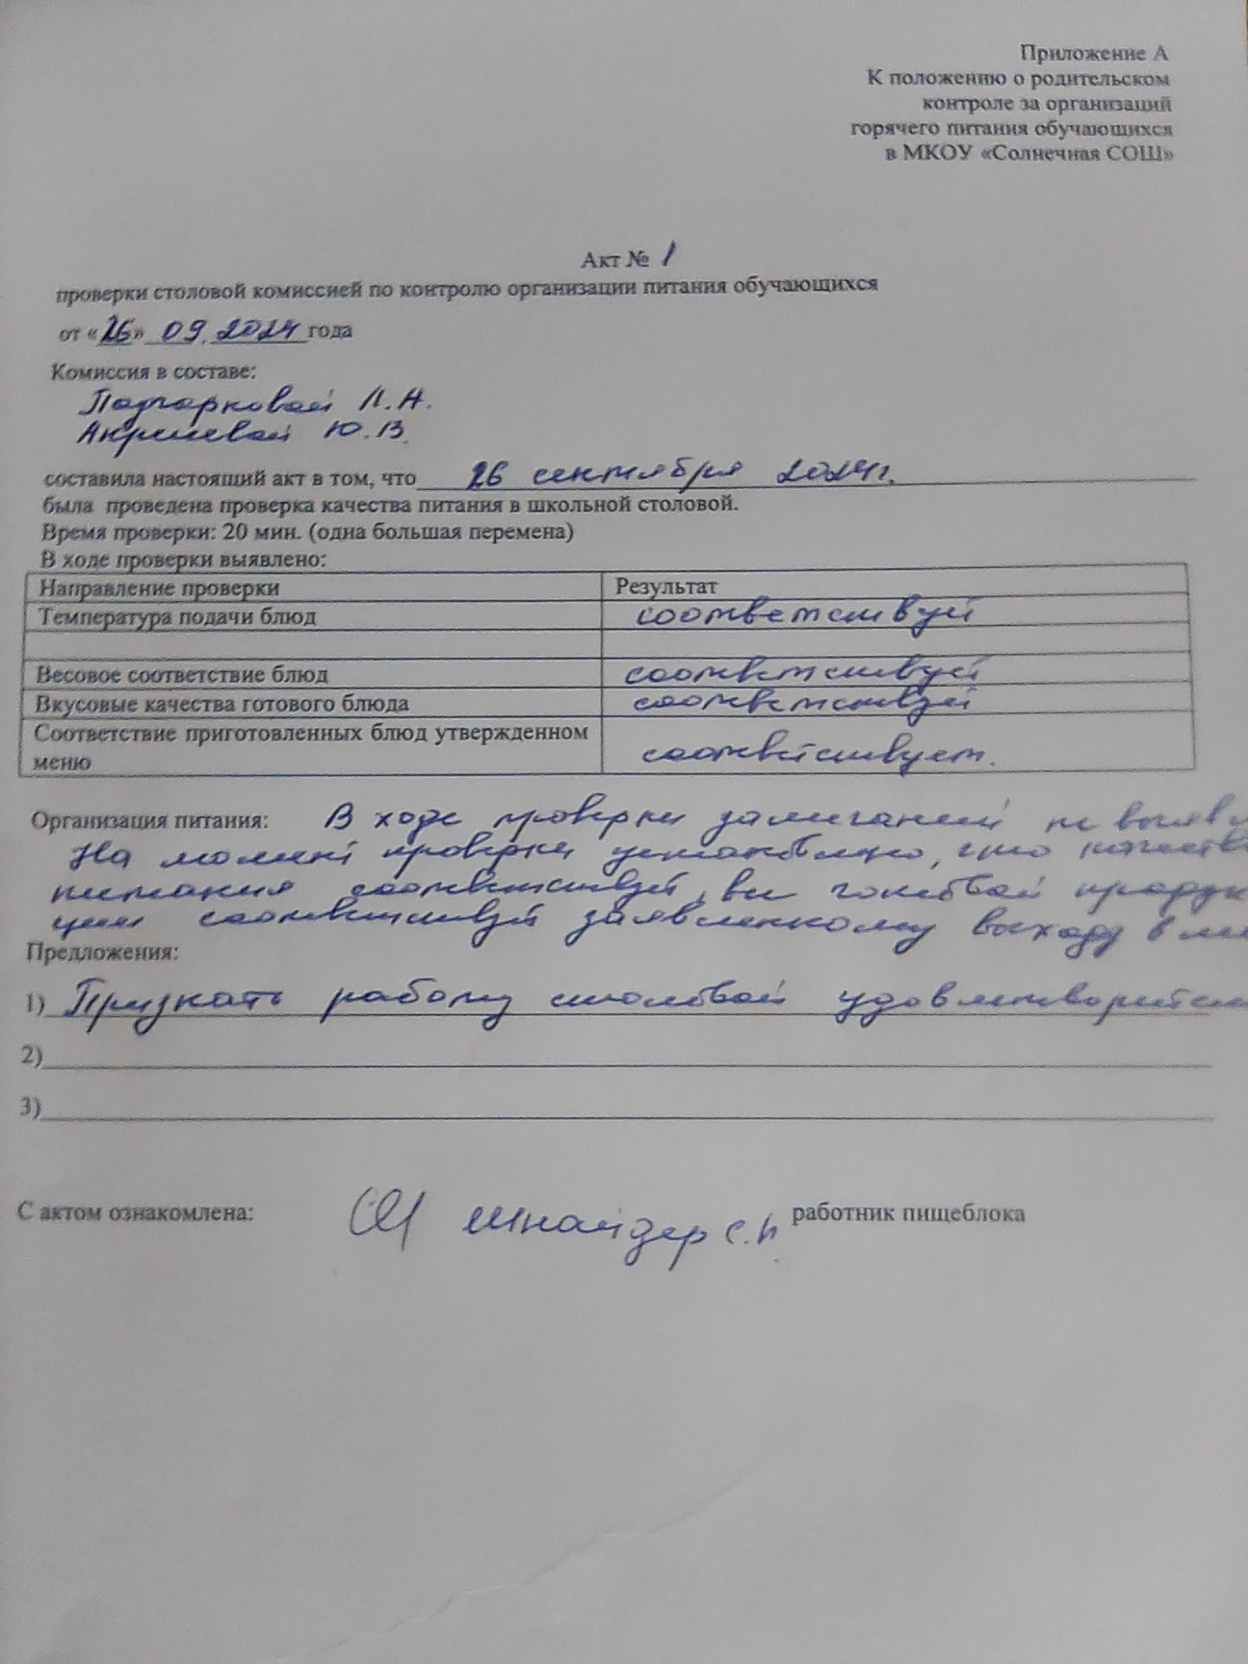 Приложение А
К положению о родительском
контроле за организаций
горячего питания обучающихся
в МКОУ «Солнечная СОШ»
Акт № 1
проверки столовой комиссией по контролю организации питания обучающихся
от «26» 09. 2024 года
Комиссия в составе:
Л.А.
Ю.В.
составила настоящий акт в том, что 26 сентября 2024г.
была проведена проверка качества питания в школьной столовой.
Время проверки: 20 мин. (одна большая перемена)
В ходе проверки выявлено:
Направление проверки Результат
Температура подачи блюд соответствует
Весовое соответствие блюд соответствует
Вкусовые качества готового блюда соответствует
Соответствие приготовленных блюд утвержденном
меню соответствует.
Организация питания: В ходе проверки замечаний не
На момент проверки установлено, что
питания соответствует, готовой
ции соответствует заявленному выходу в
Предложения:
1) Признать работу столовой
2)
3)
С актом ознакомлена: Шнайдер С.И. работник пищеблока